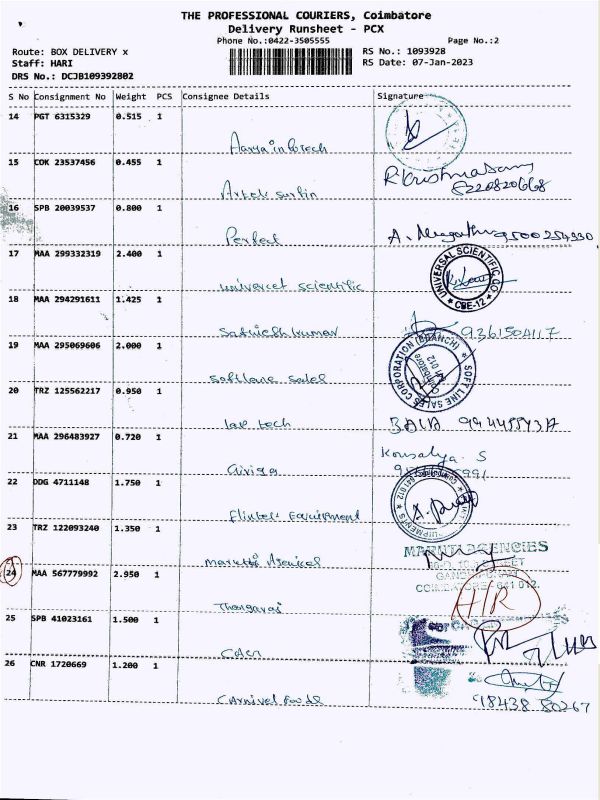 THE PROFESSIONAL COURIERS, Coimbatore
Delivery Runsheet - PCX
Phone No.:0422-3505555 Page No.:2
Route: BOX DELIVERY x RS No.: 1093928
Staff: HARI RS Date: 07-Jan-2023
DRS No.: DCJB109392802
S No Consignment No Weight PCS Consignee Details Signature
14 PGT 6315329 0.515 1
Aarya infotech
15 COK 23537456 0.455 1
R Krishnasamy
8220820668
16 SPB 20039537 0.800 1
Perfect 9500254930
17 MAA 299332319 2.400 1
universel scientific UNIVERSAL SCIENTIFIC CO CBE-12
18 MAA 294291611 1.425 1
Sathieshkumar 9361504117
19 MAA 295069606 2.000 1
softlane sales SOFT LINE SALES CORPORATION (BRANCH)
20 TRZ 125562217 0.950 1
lab tech BALA
21 MAA 296483927 0.720 1
Kousalya. S
22 DDG 4711148 1.750 1
23 TRZ 122093240 1.350 1
MARUTI AGENCIES
COIMBATORE - 641 012.
24 MAA 567779992 2.950 1
Thangavai H/R
25 SPB 41023161 1.500 1
26 CNR 1720669 1.200 1
Carnivel Foods 98438 80267